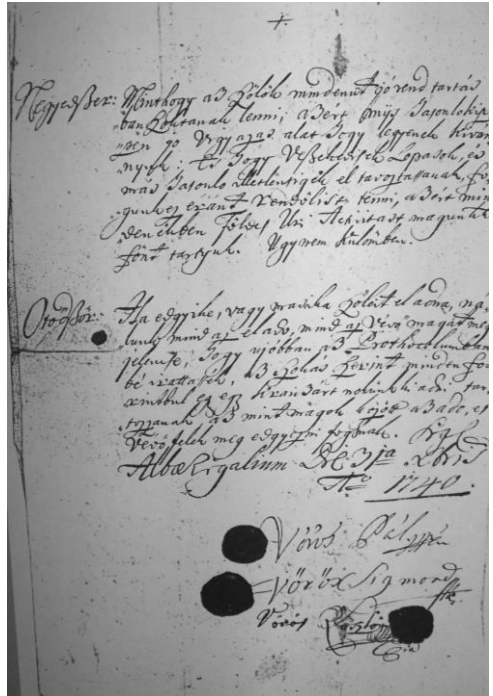 Negyedßer: Minthogy aß ßőlők mindenütt jó rend tartás
ban ßoktanak lenni, aßert mys hasonlokip
pen jó vigyazás alat hogy legyenek kiván
nyuk: És hogy Veßekedesek Lopasok, es
más hasonlo illetlensigek el tavoztassanak, fo
gunk ez eránt rendelist tenni, aßert min
denekben földes Uri Activitast magunk
fönt tartyuk. Ugy nem külömben.
Ötödßör: Ha edgyike, vagy masika ßőlőit el adna, ná
lunk mind az elado, mind az Vevő magát meg
jelentse, hogy ujobban aß Prothocolumban
be irattassék, aß ßokas ßerint minden fo
rintbul egy egy krajczárt nekünk kiadni tar
tozzanak aß mint magok között aß ado, es
Vevő felek meg edgyezni fognak.
Albæ Regalium Die 3ja
Ao 1740.
Vörös Pál
Vörös Sigmond
Vörös